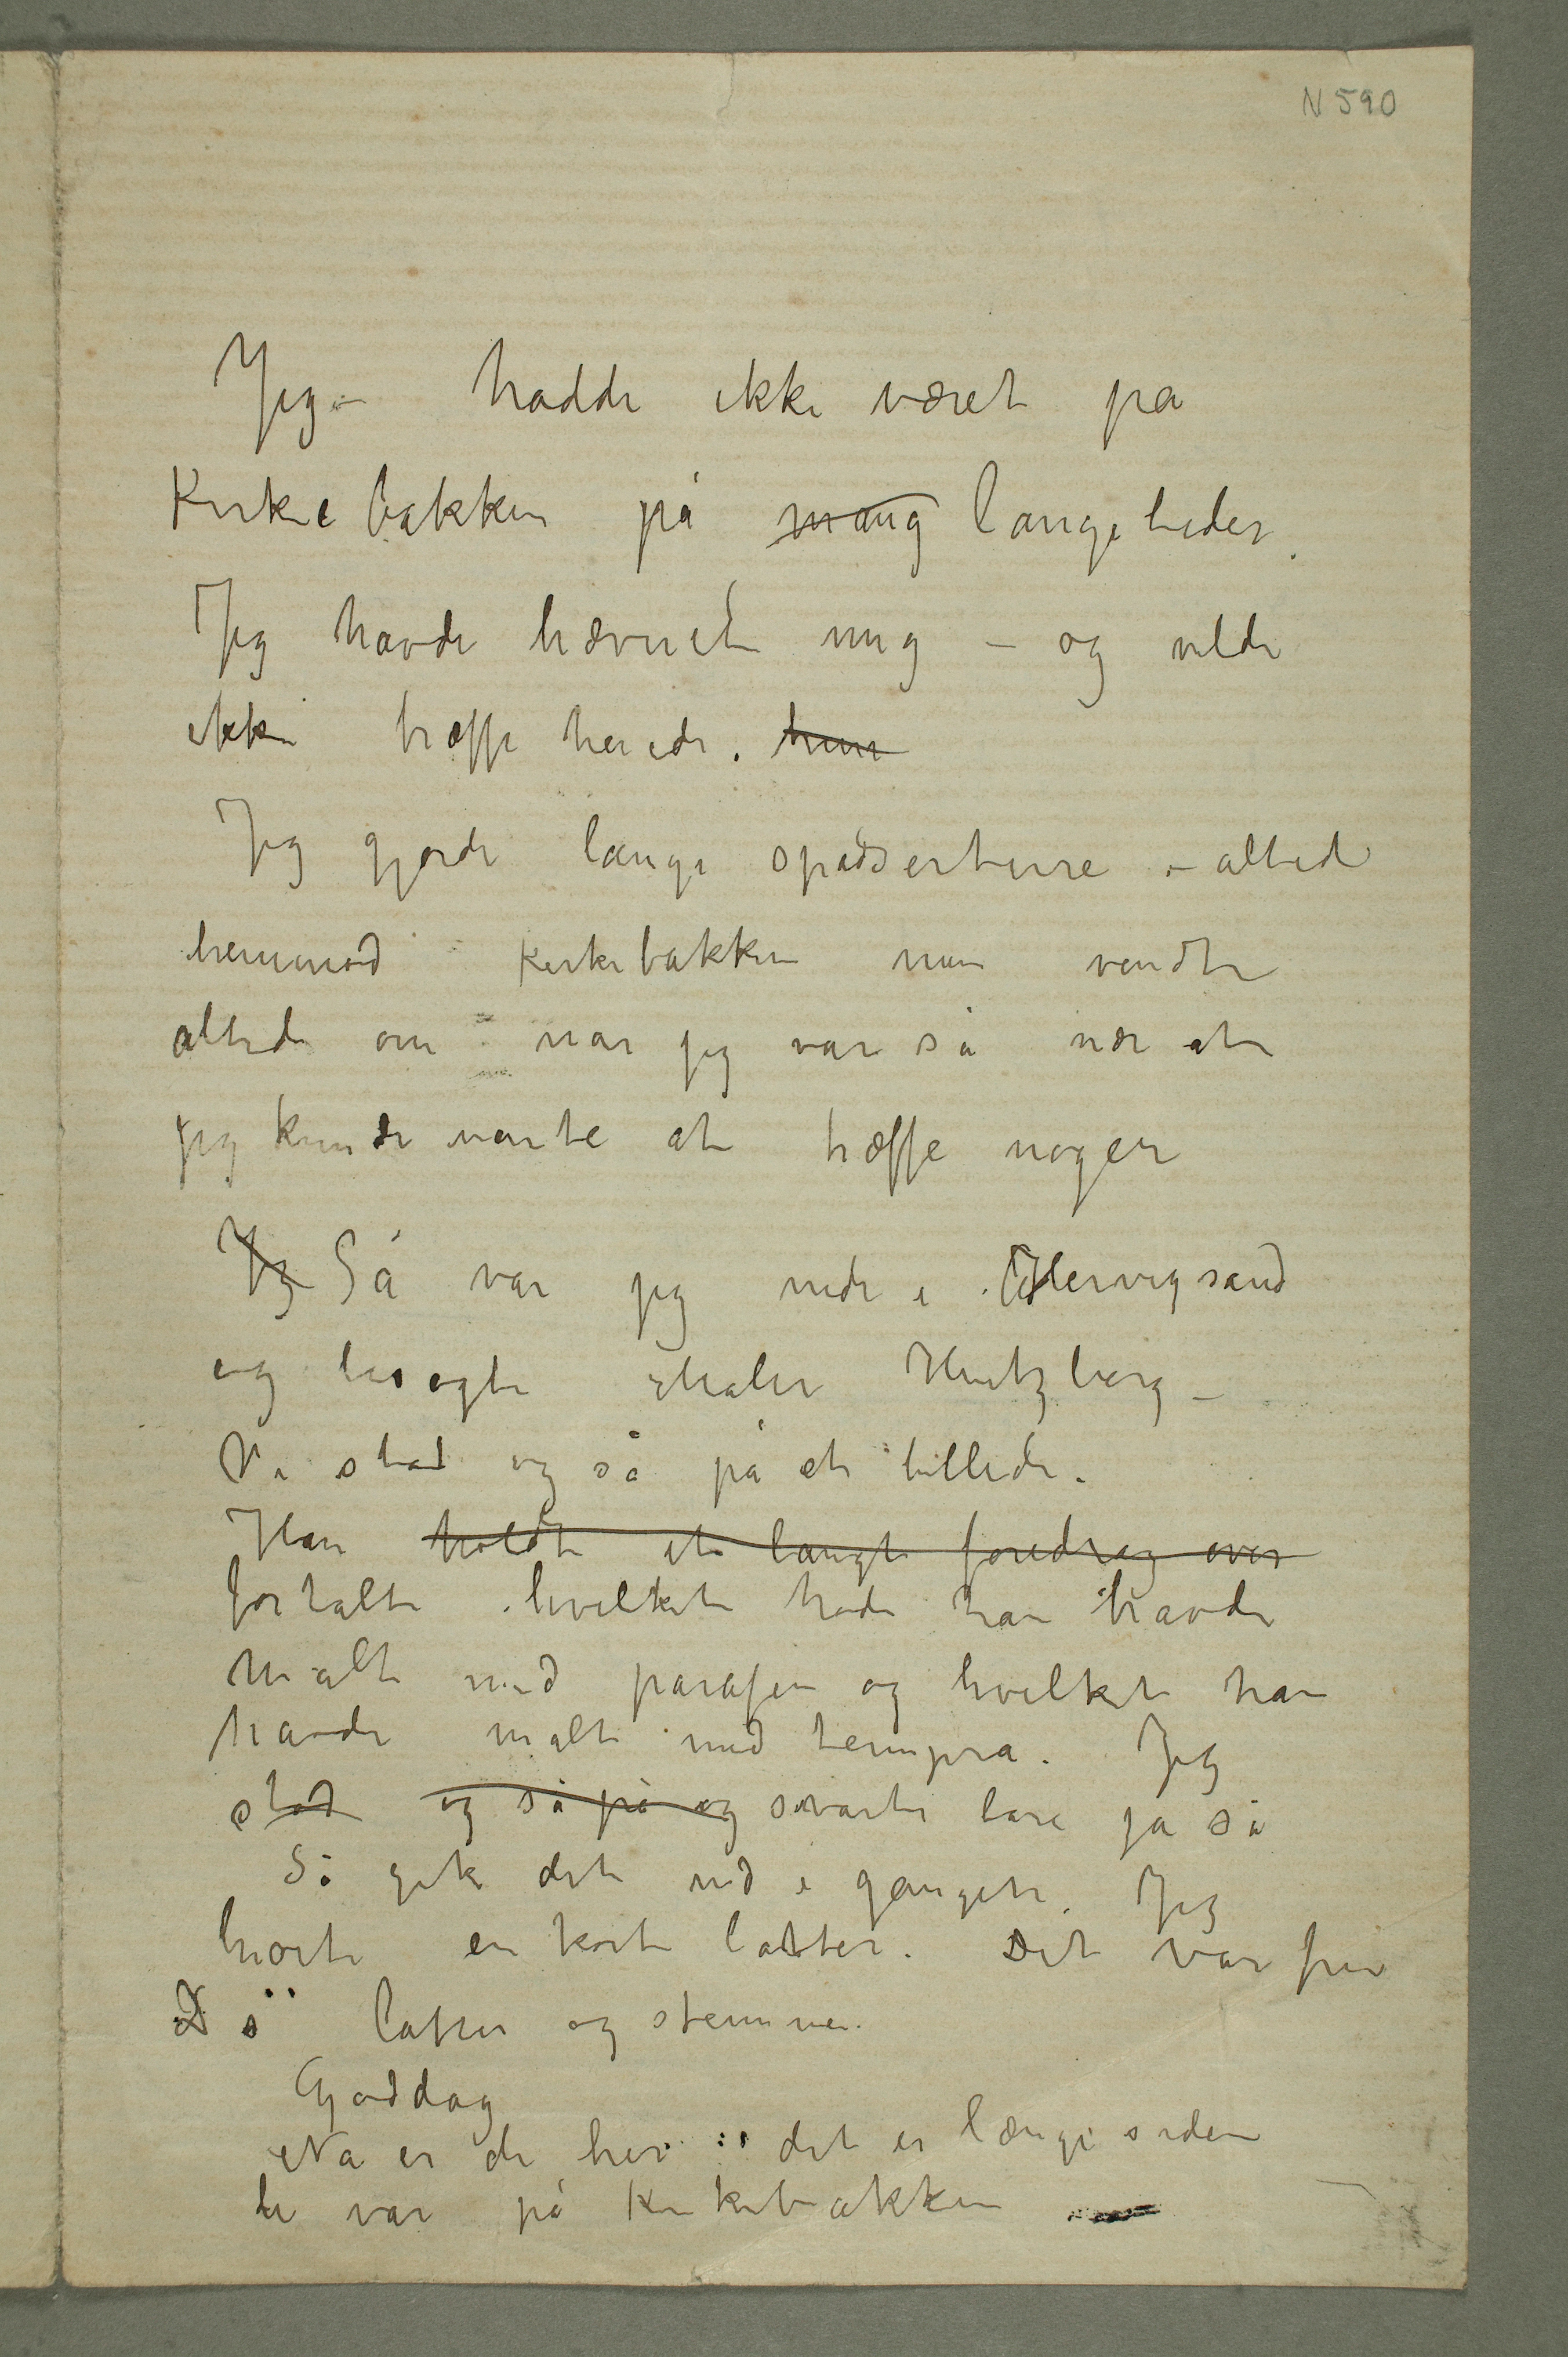 N 590
Jeg – hadde ikke været på
Kirkebakken på mang lange tider.
Jeg havde hævnet mig – og vilde
ikke træffe hende. hun
Jeg gjorde lange spadserture – altid
henimod Kirkebakken men vendte
altid om når jeg var så nær at
jeg kunde vente at træffe nogen
Jeg Så var jeg nede i Hervigsand
og besøgte maler Hertzberg –
Vi stod og så på et billede.
Han holdt et langt foredrag over
fortalte hvilket hode han havde
malt med parafin og hvilket han
havde malt med tempra. Jeg
stod og så på og svarte bare ja så
Så gik det ned i gangen. Jeg
hørte en kort latter. Det var fru
Ds latter og stemme.
Goddag
Nå er de her det er længe siden
de var på Kirkebakken